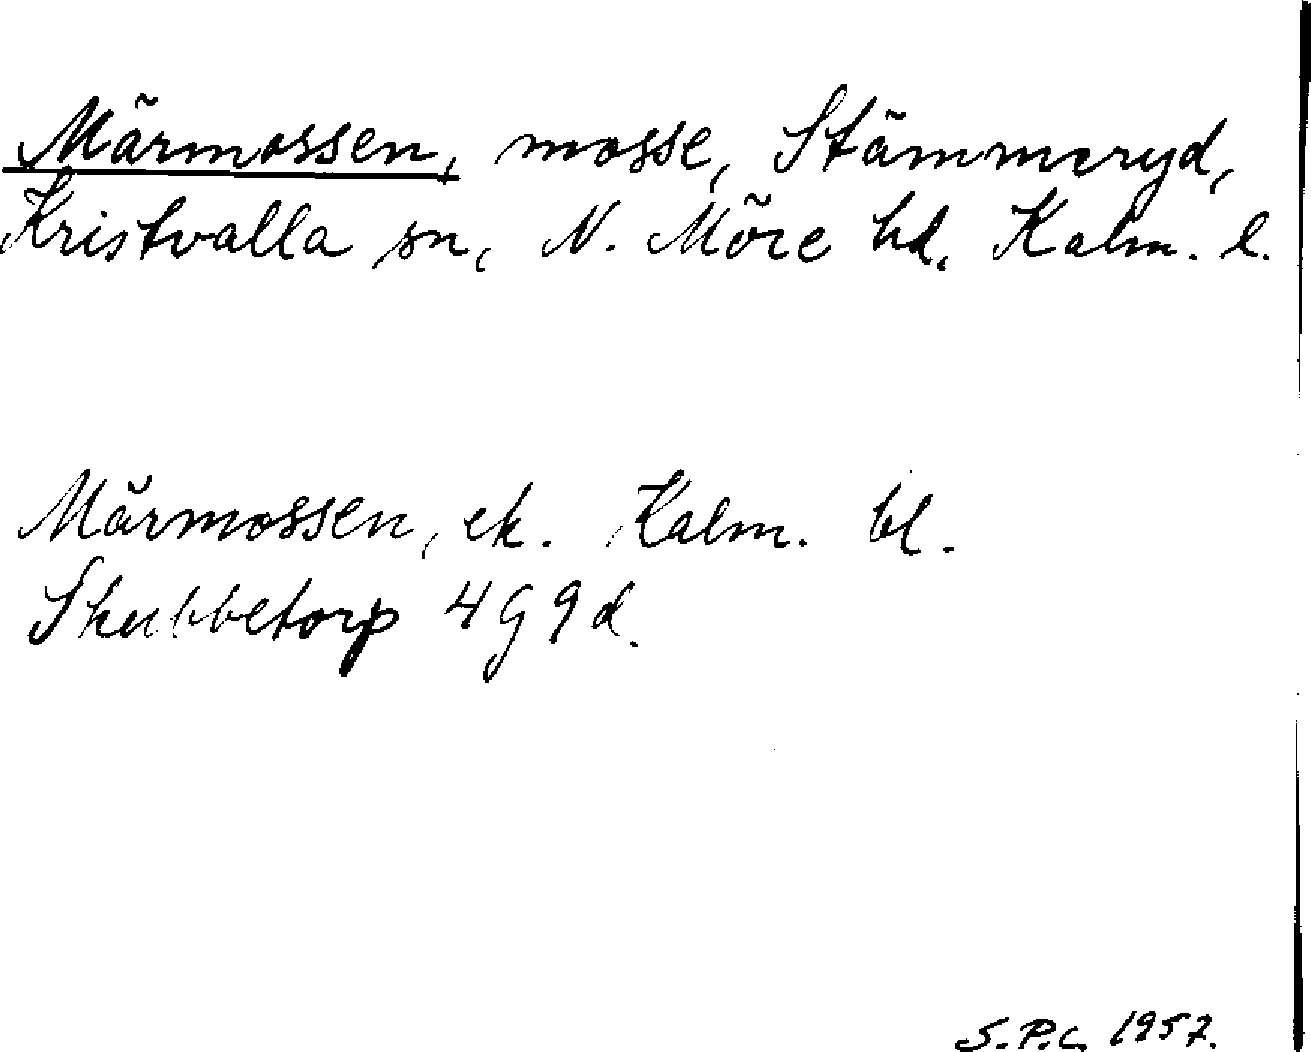 Märmossen, mosse, Stämmeryd,
Kristvalla sn, N. Möre hd, Kalm. l.
Märmossen, ek. Kalm. bl.
Skubbetorp 4G9d.
S.P.C. 1957.